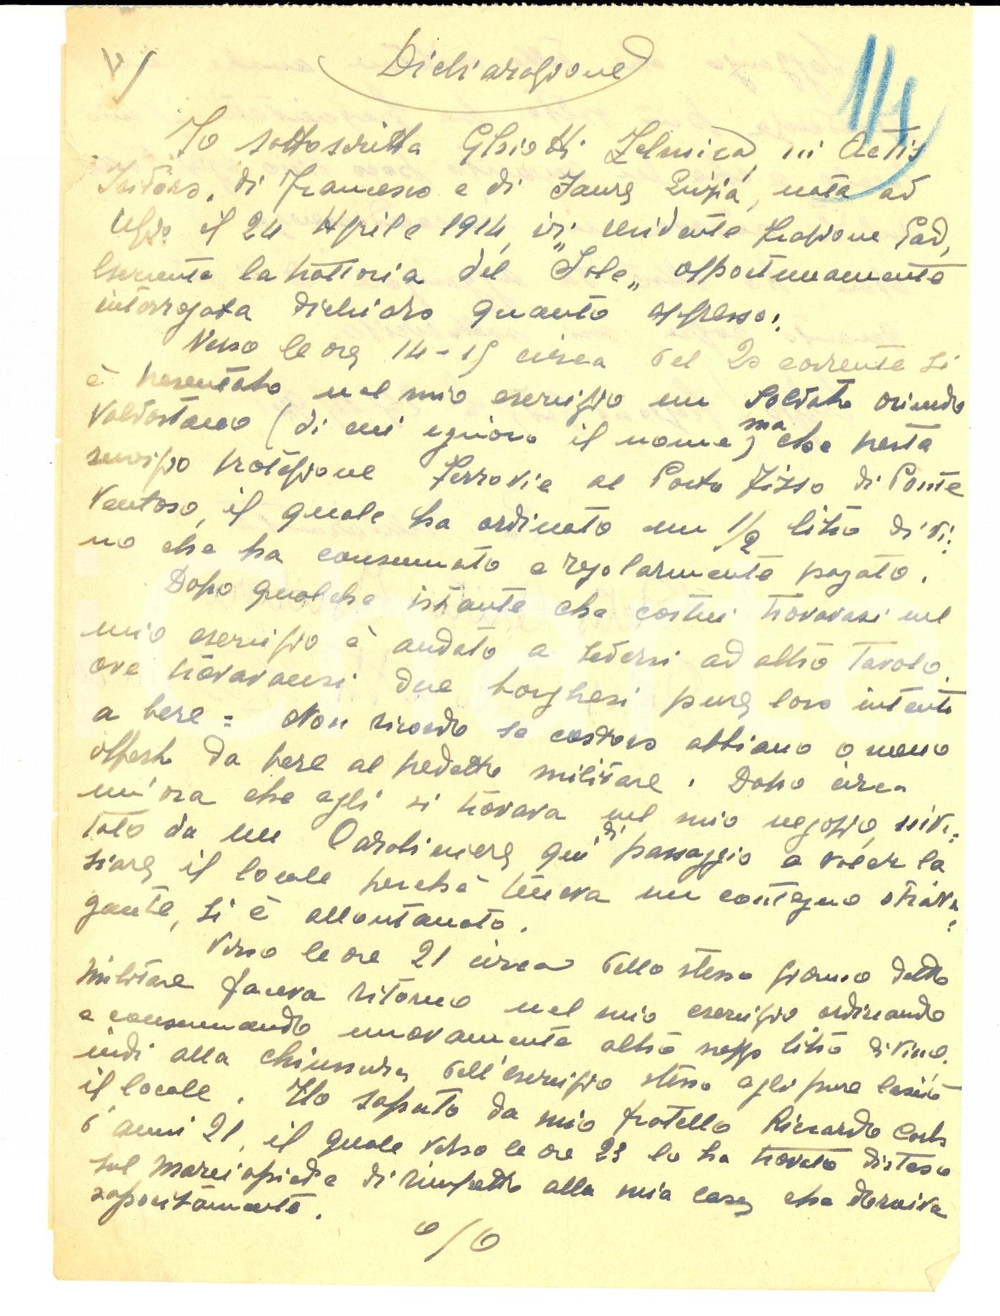 V/
Dichiarazione
111
Io sottoscritta Ghiotti Zelmira, in Actis
Isidoro, di Francesco e di, nata ad
il 24 Aprile 1914, ivi residente frazione
esercente la trattoria del "Sole" opportunamente
interrogata dichiaro quanto appresso:
Verso le ore 14-15 circa del 20 corrente si
è presentato nel mio esercizio un soldato oriundo
Valdostano (di cui ignoro il nome) ma che presta
servizio protezione Ferrovie al Posto Fisso di Ponte
Ventoso, il quale ha ordinato un 1/2 litro di vi:
no che ha consumato e regolarmente pagato.
Dopo qualche istante che costui trovavasi nel
mio esercizio è andato a sedersi ad altro tavolo,
ove trovavansi due borghesi pure loro intenti
a bere = Non ricordo se costoro abbiano o meno
offerto da bere al predetto militare. Dopo circa
un'ora che egli si trovava nel mio negozio, invi:
tato da un Carabiniere qui di passaggio a voler la
sciare il locale perchè teneva un contegno strava:
gante, si è allontanato.
Verso le ore 21 circa dello stesso giorno detto
militare faceva ritorno nel mio esercizio ordinando
e consumando nuovamente altro mezzo litro di vino,
indi alla chiusura dell'esercizio stesso egli pure lasciò
il locale. Ho saputo da mio fratello Riccardo
d'anni 21, il quale verso le ore 23 lo ha trovato disteso
sul marciapiede di rimpetto alla mia casa, che dormiva
saporitamente.
o/o